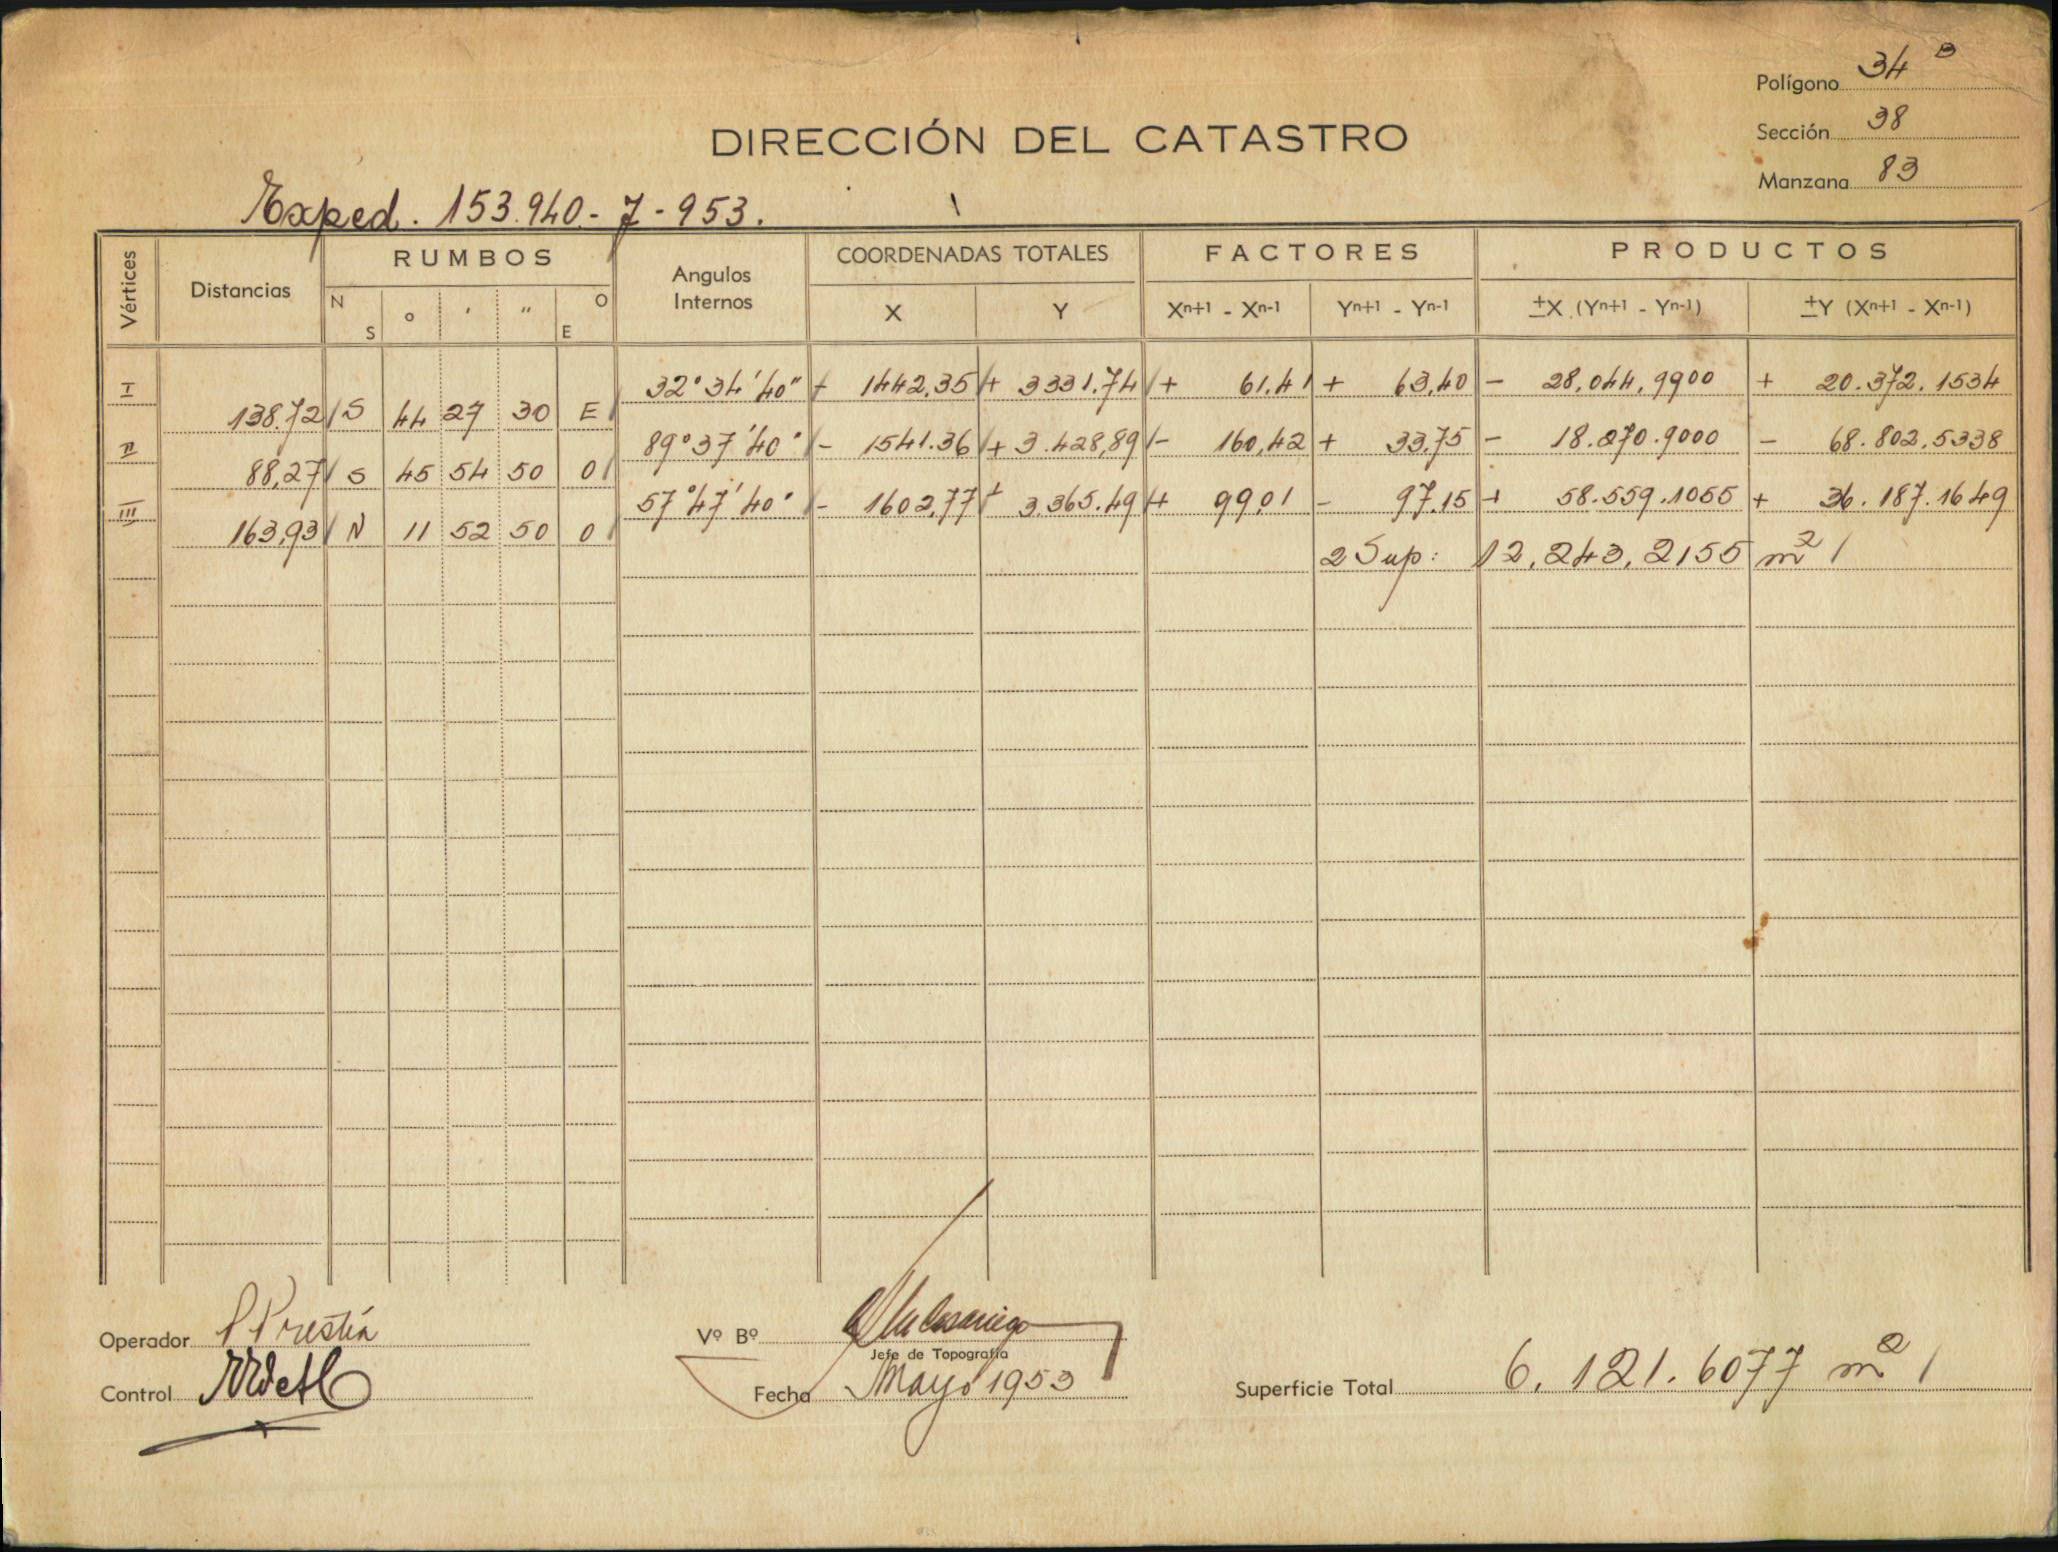 Polígono 34 B
Sección 38
Manzana 83
DIRECCIÓN DEL CATASTRO
Exped. 153.940.- 7 - 953.
Vértices Distancias RUMBOS Angulos Internos COORDENADAS TOTALES FACTORES PRODUCTOS
N S ° ' " O E X Y Xn+1 - Xn-1 Yn+1 - Yn-1 ±X (Yn+1 - Yn-1) ±Y (Xn+1 - Xn-1)
I 32° 34' 40" - 1442,35 + 3331.74 + 61.41 + 63,40 - 28,044,9900 + 20.372.1534
138.72 S 44 27 30 E
II 89° 37' 40" - 1541.36 + 3.428,89 - 160,42 + 33.75 - 18.270.9000 - 68.802,5338
88,27 S 45 54 50 O
III 57° 47' 40" - 1602,77 + 3.365.49 + 99.01 - 97.15 + 58.559.1055 + 36.187.1649
163,93 N 11 52 50 O
2 Sup: 12,243,2155 m2
Operador P Prestía
Control
Vº Bº
Jefe de Topografía
Fecha Mayo 1953
Superficie Total 6.121.6077 m2